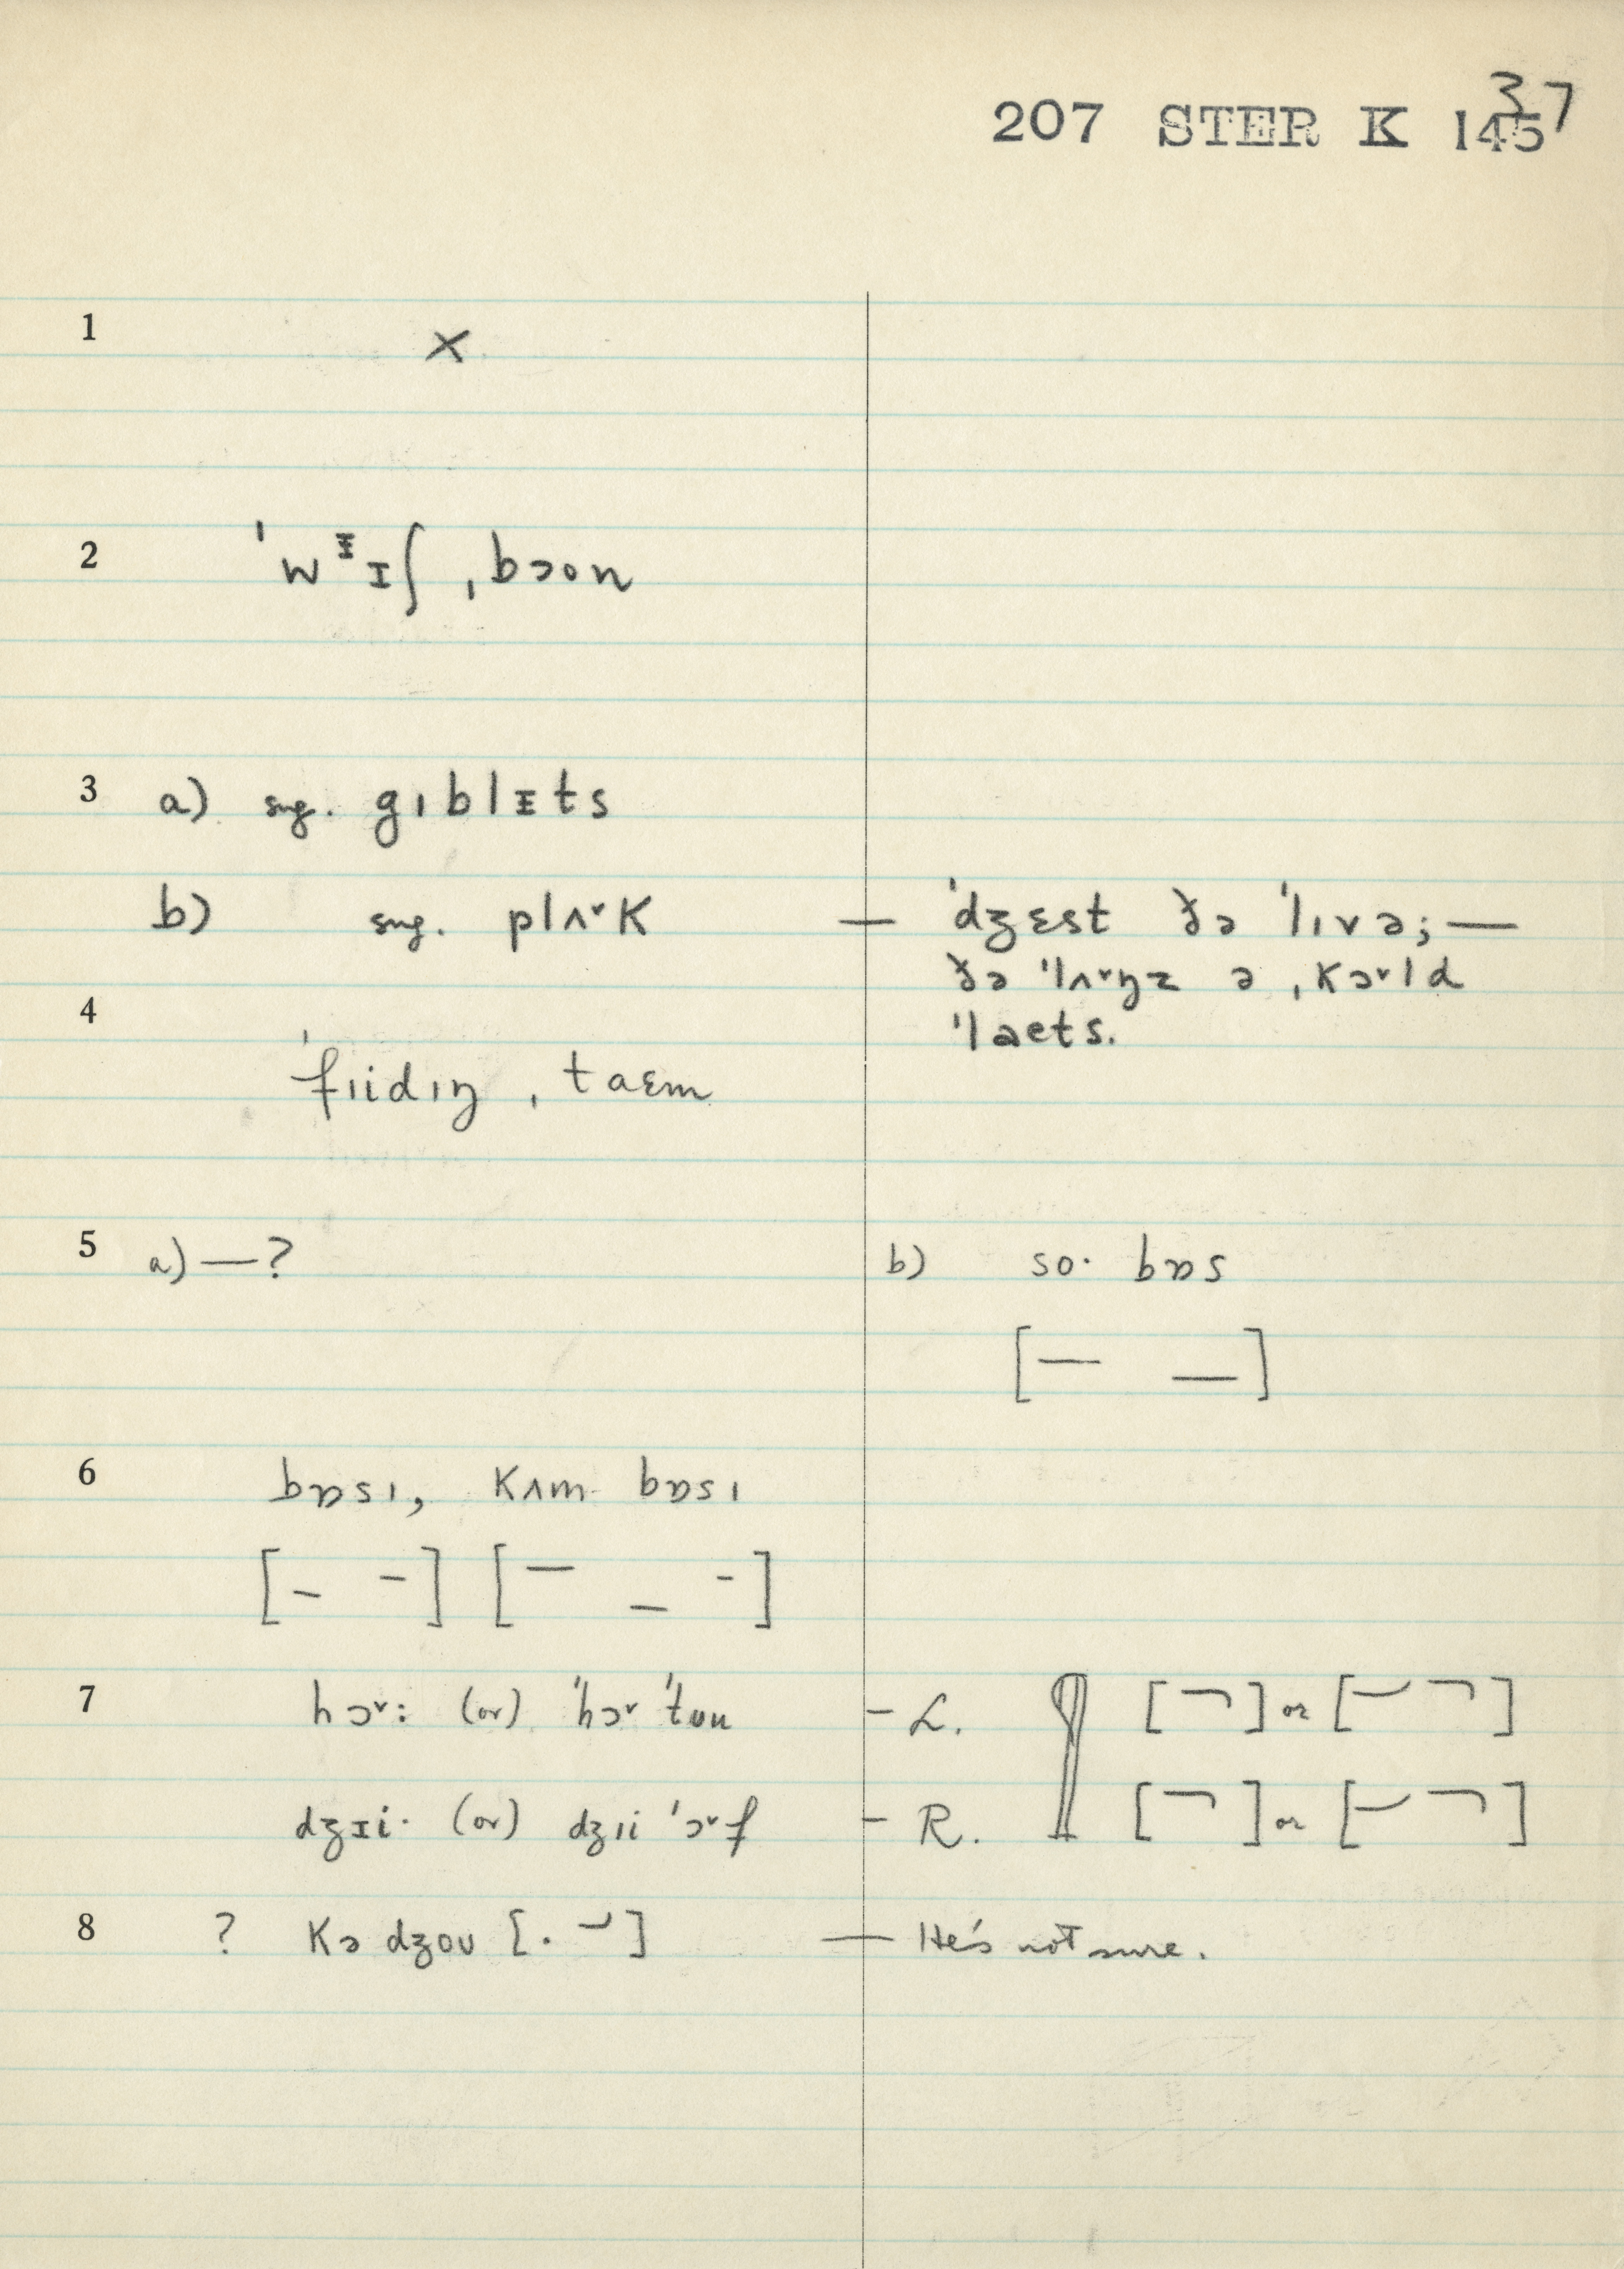 207 STER K 145 37
1 ×
2 ˈwᵻɪʃ ˌbɔon
3 a) sug. gɪblᵻts
b) sug. plʌ˅k — ˈdʒɛst ðə ˈlɪvə; —
ðə ˈlʌ˅ŋz ə ˌkɔ˅ld
ˈlaets.
4 ˈfɪidɪŋ ˌtaɛm
5 a) — ? b) so· bɒs
[— —]
6 bɒsɪ, kʌm bɒsɪ
[- -] [— – -]
7 hɔ˅: (or) ˈhɔ˅ ˈtʊu - L. ¶ [¬] or [— ¬]
dʒɪi· (or) dʒɪi ˈɔ˅f - R. [¬] or [— ¬]
8 ? kə dʒoʊ [. –] — He's not sure.